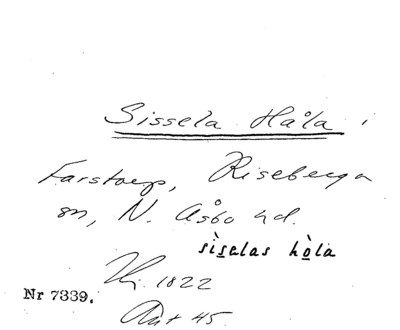 Sissela Håla i
Farstorp, Riseberga
sn, N. Åsbo hd.
sìselas hòla
1822
Nr 7339.
Ant 45.